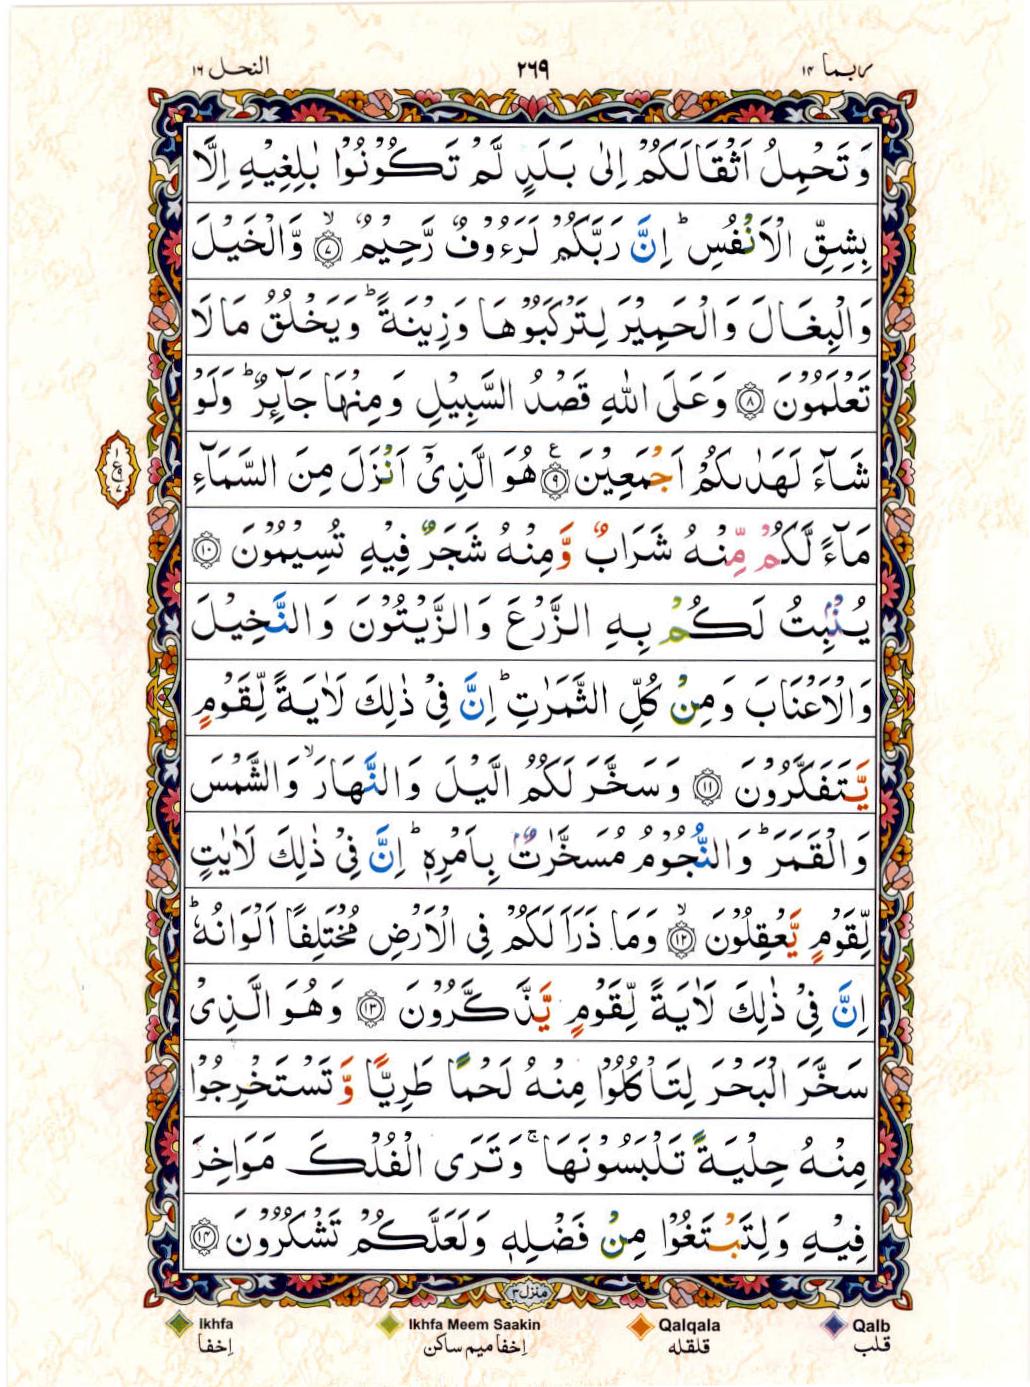 ربما ١٤
٢٦٩
النحل ١٦
وَتَحْمِلُ اَثْقَالَكُمْ اِلٰى بَلَدٍ لَّمْ تَكُوْنُوْا بٰلِغِيْهِ اِلَّا
بِشِقِّ الْاَنْفُسِ ؕ اِنَّ رَبَّكُمْ لَرَءُوْفٌ رَّحِيْمٌ ۙ ﴿٧﴾ وَّالْخَيْلَ
وَالْبِغَالَ وَالْحَمِيْرَ لِتَرْكَبُوْهَا وَزِيْنَةً ؕ وَيَخْلُقُ مَا لَا
تَعْلَمُوْنَ ﴿٨﴾ وَعَلَى اللّٰهِ قَصْدُ السَّبِيْلِ وَمِنْهَا جَآئِرٌ ؕ وَلَوْ
شَآءَ لَهَدٰٮكُمْ اَجْمَعِيْنَ ﴿٩﴾ ع هُوَ الَّذِىْۤ اَنْزَلَ مِنَ السَّمَآءِ
مَآءً لَّكُمْ مِّنْهُ شَرَابٌ وَّمِنْهُ شَجَرٌ فِيْهِ تُسِيْمُوْنَ ﴿١٠﴾
يُنْۢبِتُ لَكُمْ بِهِ الزَّرْعَ وَالزَّيْتُوْنَ وَالنَّخِيْلَ
وَالْاَعْنَابَ وَمِنْ كُلِّ الثَّمَرٰتِ ؕ اِنَّ فِىْ ذٰلِكَ لَاٰيَةً لِّقَوْمٍ
يَّتَفَكَّرُوْنَ ﴿١١﴾ وَسَخَّرَ لَكُمُ الَّيْلَ وَالنَّهَارَ ۙ وَالشَّمْسَ
وَالْقَمَرَ ؕ وَالنُّجُوْمُ مُسَخَّرٰتٌۢ بِاَمْرِهٖ ؕ اِنَّ فِىْ ذٰلِكَ لَاٰيٰتٍ
لِّقَوْمٍ يَّعْقِلُوْنَ ۙ ﴿١٢﴾ وَمَا ذَرَاَ لَكُمْ فِى الْاَرْضِ مُخْتَلِفًا اَلْوَانُهٗ ؕ
اِنَّ فِىْ ذٰلِكَ لَاٰيَةً لِّقَوْمٍ يَّذَّكَّرُوْنَ ﴿١٣﴾ وَهُوَ الَّذِىْ
سَخَّرَ الْبَحْرَ لِتَاْكُلُوْا مِنْهُ لَحْمًا طَرِيًّا وَّتَسْتَخْرِجُوْا
مِنْهُ حِلْيَةً تَلْبَسُوْنَهَا ۚ وَتَرَى الْفُلْكَ مَوَاخِرَ
فِيْهِ وَلِتَبْتَغُوْا مِنْ فَضْلِهٖ وَلَعَلَّكُمْ تَشْكُرُوْنَ ﴿١٤﴾
منزل ٣
Ikhfa Ikhfa Meem Saakin Qalqala Qalb
إخفا إخفا ميم ساكن قلقله قلب